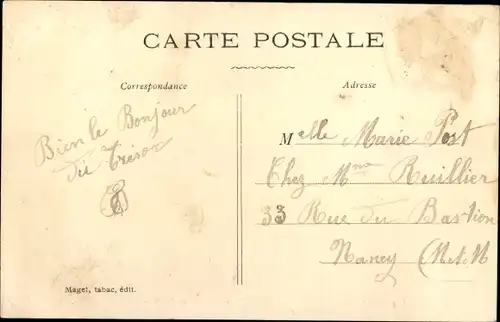 CARTE POSTALE
Correspondance
Adresse
Bien le Bonjour
du Trésor
Melle Marie Post
Chez Mme Ruillier
33 Rue du Bastion
Nancy (M.et.M
Magel, tabac, édit.